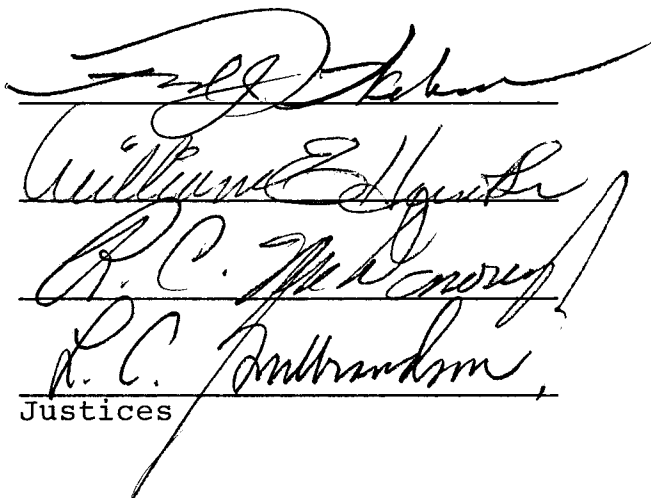 William E Hunter
R. C. McDonough
L. C. Gulbrandson
Justices